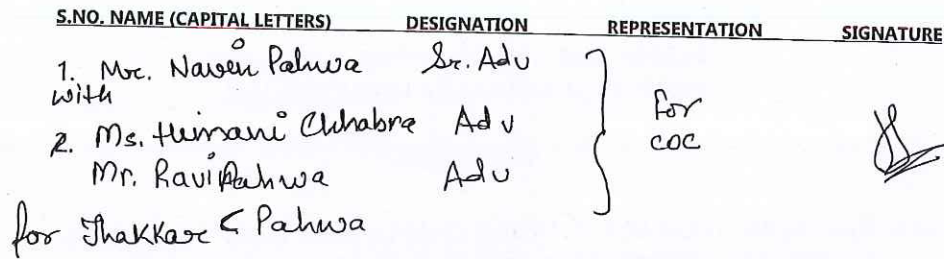 S.NO. NAME (CAPITAL LETTERS) DESIGNATION REPRESENTATION SIGNATURE
1. Mr. Navin Pahwa Sr. Adv
with
2. Ms. Himani Chhabra Adv For COC
Mr. Ravi Pahwa Adv
for Thakkar & Pahwa